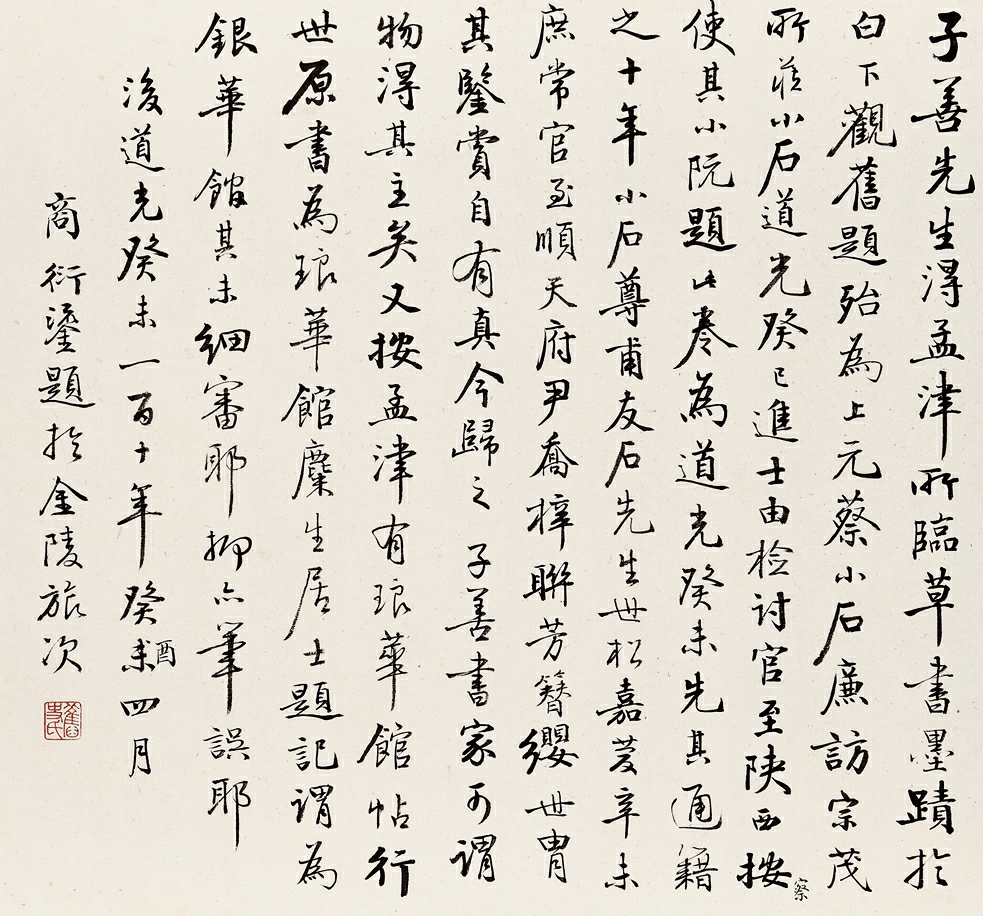 子善先生得孟津所臨草書墨蹟於
白下觀舊題殆為上元蔡小石廉訪宗茂
所藏小石道光癸巳進士由檢討官至陝西按察
使其小阮題此卷為道光癸未先其通籍
之十年小石尊甫友石先生世松嘉慶辛未
庶常官至順天府尹喬梓聯芳簪纓世胄
其鑒賞自有真今歸之 子善書家可謂
物得其主矣又按孟津有琅華館帖行
世原書為琅華館糜生居士題記謂為
銀華館其未細審耶抑亦筆誤耶
後道光癸未一百十年癸未酉四月
商衍鎏題於金陵旅次